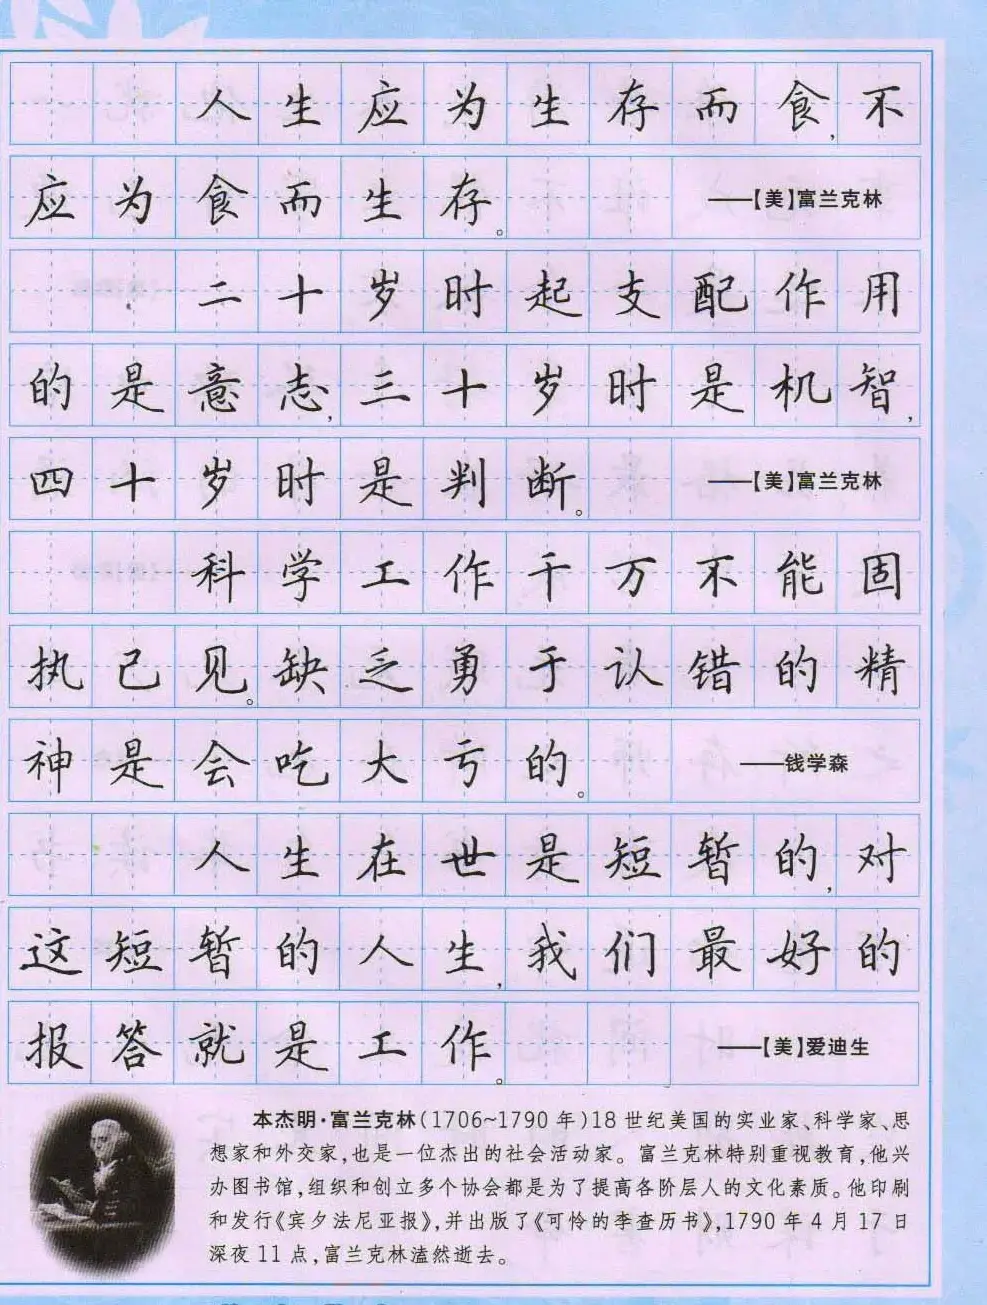 人生应为生存而食,不
应为食而生存。——【美】富兰克林
二十岁时起支配作用
的是意志,三十岁时是机智,
四十岁时是判断。——【美】富兰克林
科学工作千万不能固
执己见。缺乏勇于认错的精
神是会吃大亏的。——钱学森
人生在世是短暂的,对
这短暂的人生,我们最好的
报答就是工作。——【美】爱迪生
本杰明·富兰克林(1706~1790年)18世纪美国的实业家、科学家、思
想家和外交家,也是一位杰出的社会活动家。富兰克林特别重视教育,他兴
办图书馆,组织和创立多个协会都是为了提高各阶层人的文化素质。他印刷
和发行《宾夕法尼亚报》,并出版了《可怜的李查历书》,1790年4月17日
深夜11点,富兰克林溘然逝去。